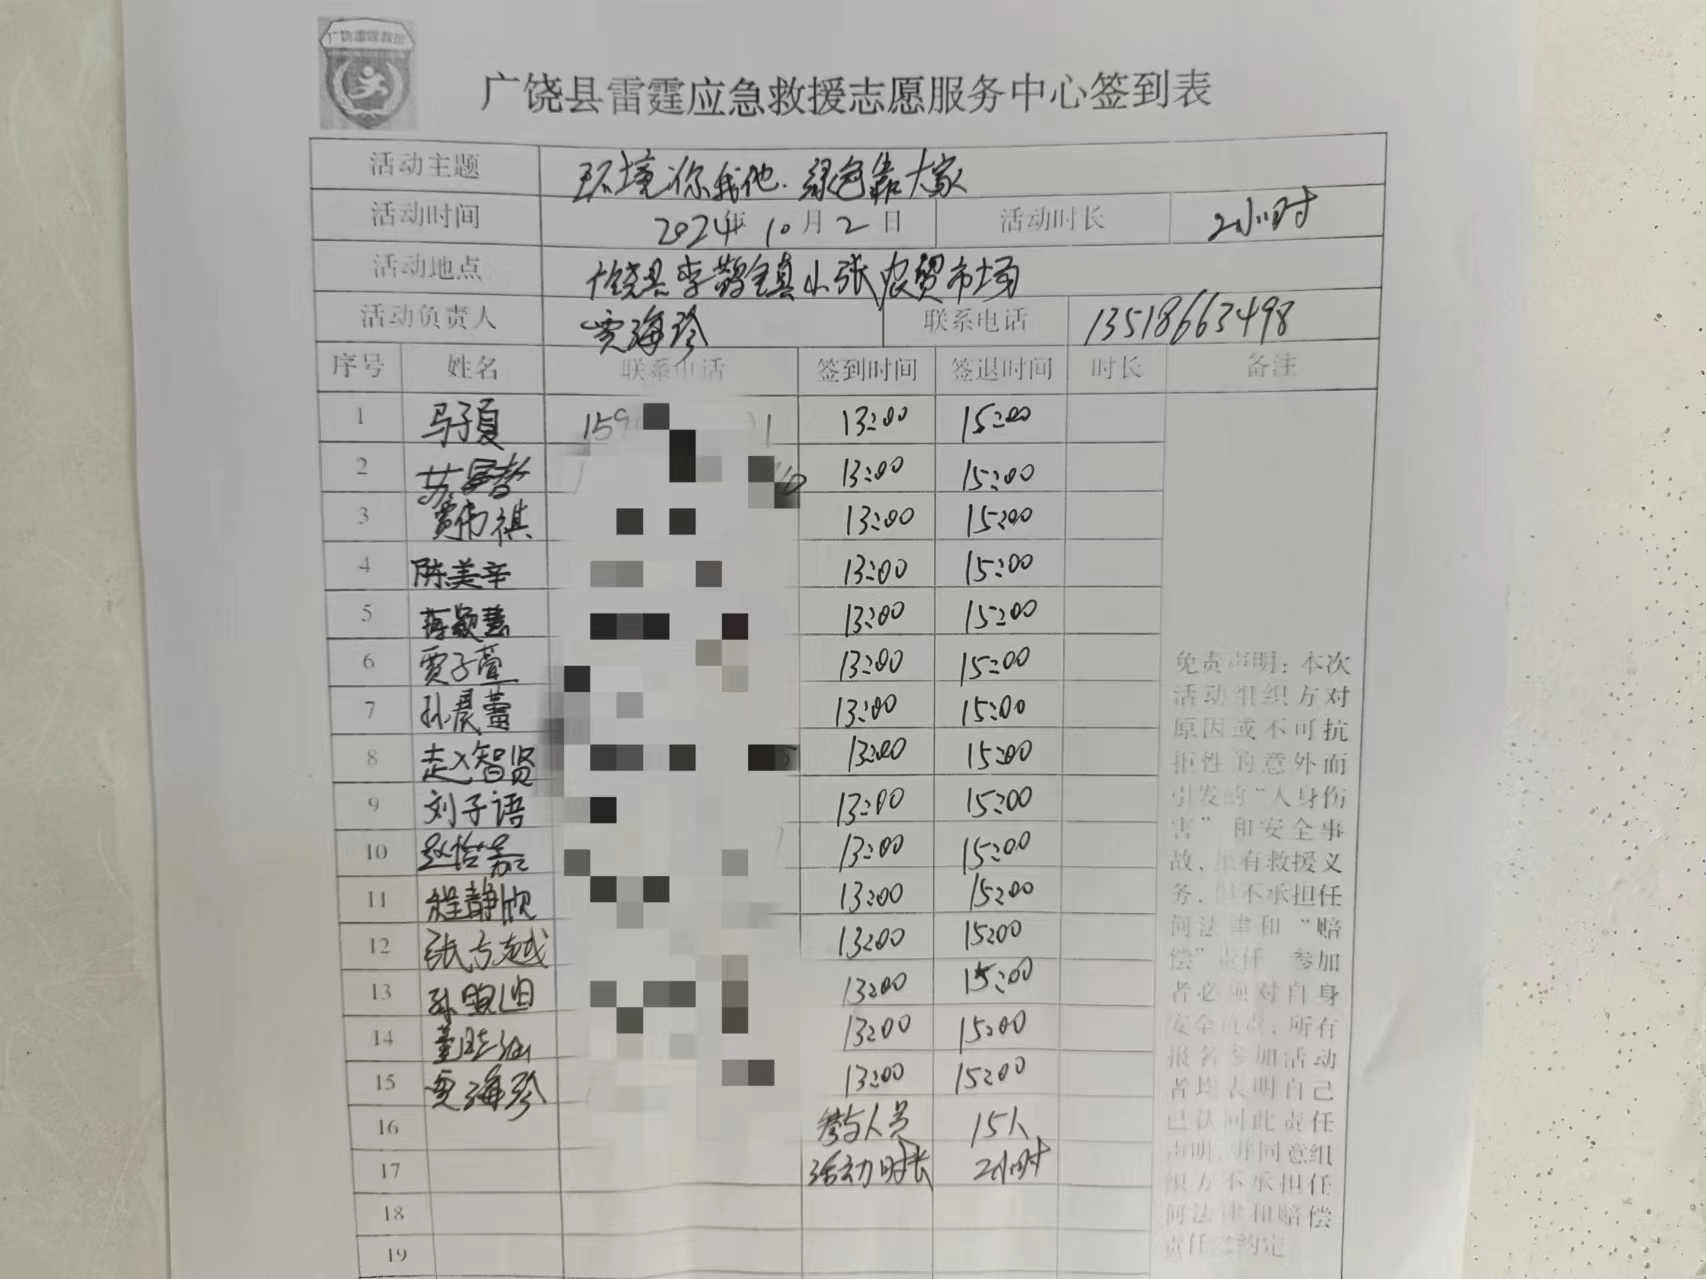 广饶雷霆救援
广饶县雷霆应急救援志愿服务中心签到表
活动主题 环境你我他.绿色靠大家
活动时间 2024年10月2日 活动时长 2小时
活动地点 广饶县李鹊镇小张农贸市场
活动负责人 贾海珍 联系电话 13518663498
序号 姓名 联系电话 签到时间 签退时间 时长 备注
1 马子夏 159 1 13:00 15:00
2 13:00 15:00
3 贾伟祺 13:00 15:00
4 陈美辛 13:00 15:00
5 蒋颖慧 13:00 15:00
6 贾子萱 13:00 15:00
7 孙晨蕾 13:00 15:00
8 赵智贤 13:00 15:00
9 刘子语 13:00 15:00
10 13:00 15:00
11 程静欣 13:00 15:00
12 张方越 13:00 15:00
13 13:00 15:00
14 13:00 15:00
15 贾海珍 13:00 15:00
16 参与人员 15人
17 活动时长 2小时
18
19
免责声明:本次
活动组织方对
原因或不可抗
拒性的意外而
引发的“人身伤
害”和安全事
故,虽有救援义
务,但不承担任
何法律和“赔
偿”责任 参加
者必须对自身
安全负责,所有
报名参加活动
者均表明自己
已认同此责任
声明,并同意组
织方不承担任
何法律和赔偿
责任之约定